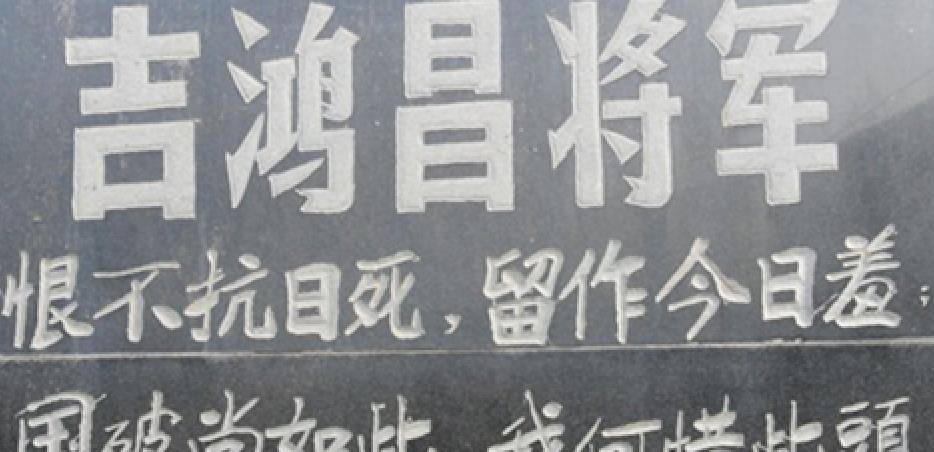 吉鸿昌将军
恨不抗日死，留作今日羞；
国破尚如此，我何惜此頭